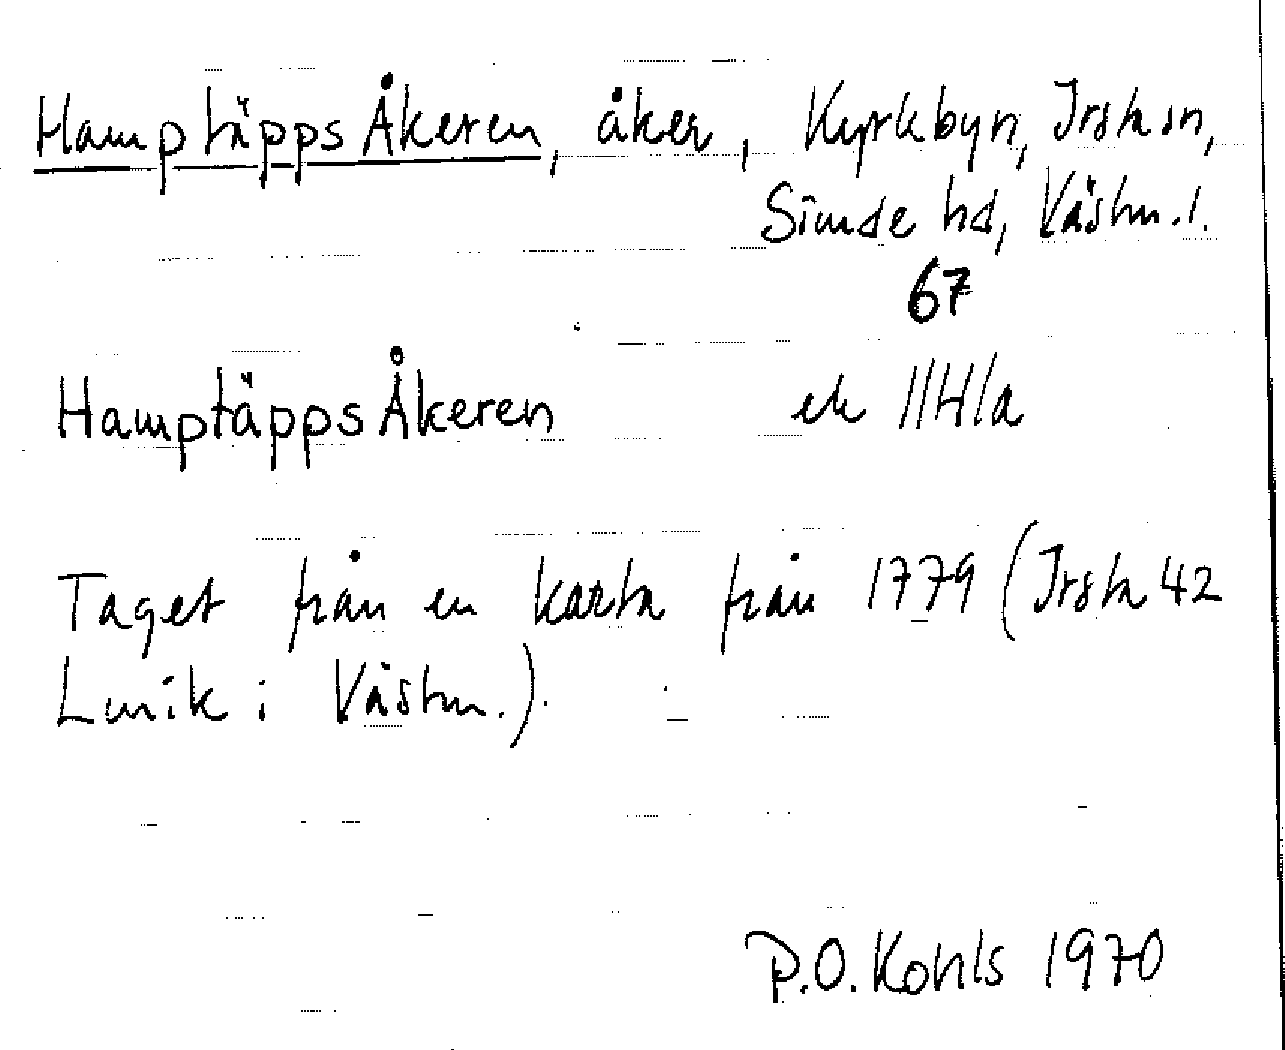 HamptäppsÅkeren, åker, Kyrkbyn, Irsta sn,
Siende hd, Västm.l.
67
HamptäppsÅkeren ek 11H1a
Taget från en karta från 1779 (Irsta 42
Lmik i Västm.).
P.O. Kohls 1970